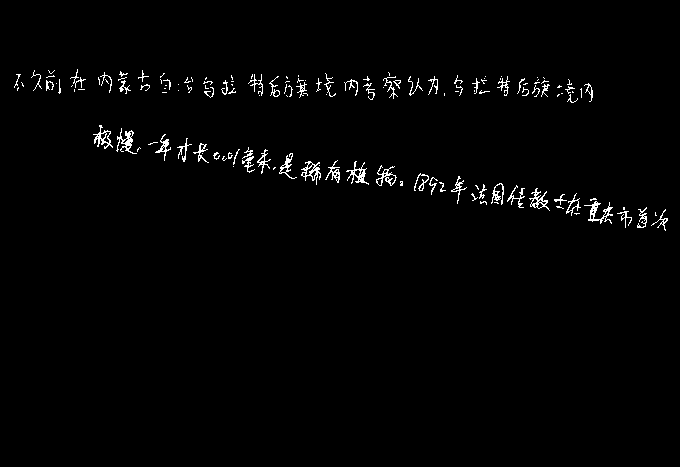 不久前在内蒙古自治乌拉特后旗境内考察认为,乌拉特后旗境内
极慢,一年才长0.01毫米,是稀有植物。1892年法国传教士在重庆市首次